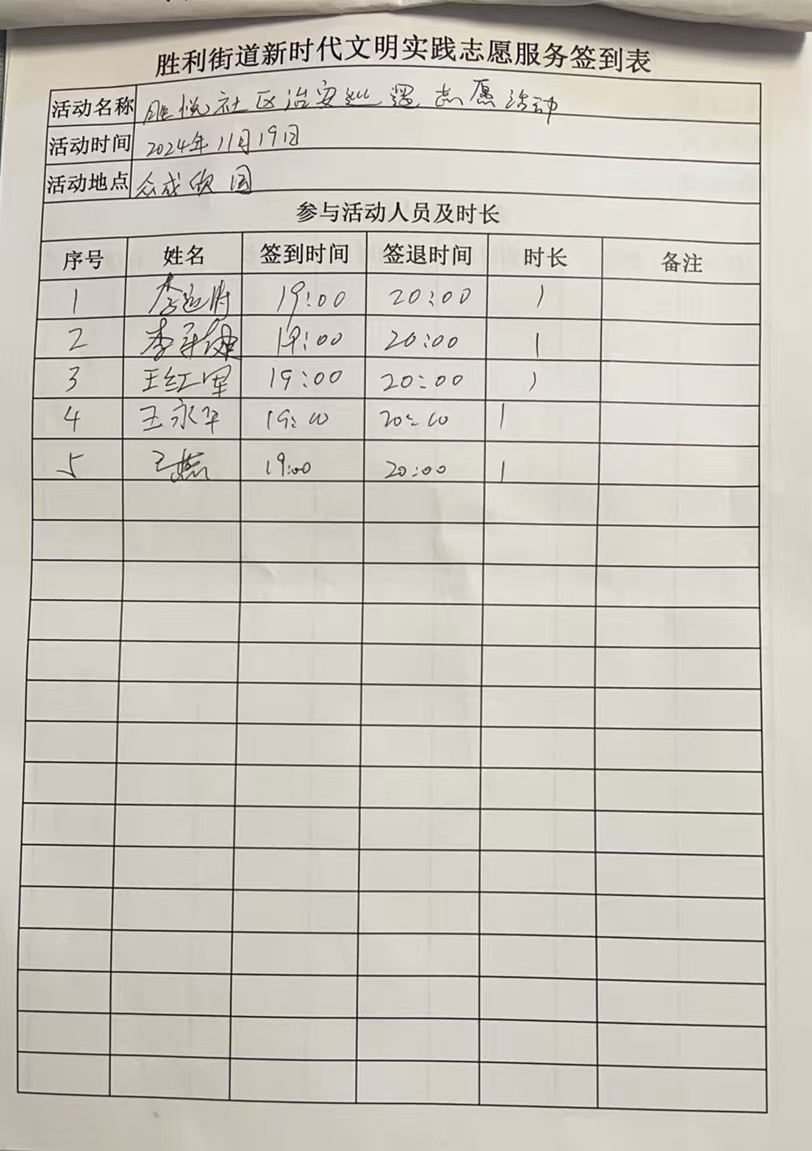 胜利街道新时代文明实践志愿服务签到表
活动名称 胜悦社区治安巡逻志愿活动
活动时间 2024年11月19日
活动地点 众成欣园
参与活动人员及时长
序号 姓名 签到时间 签退时间 时长 备注
1 李 19:00 20:00 1
2 李 19:00 20:00 1
3 王红军 19:00 20:00 1
4 王永平 19:00 20:00 1
5 王 19:00 20:00 1